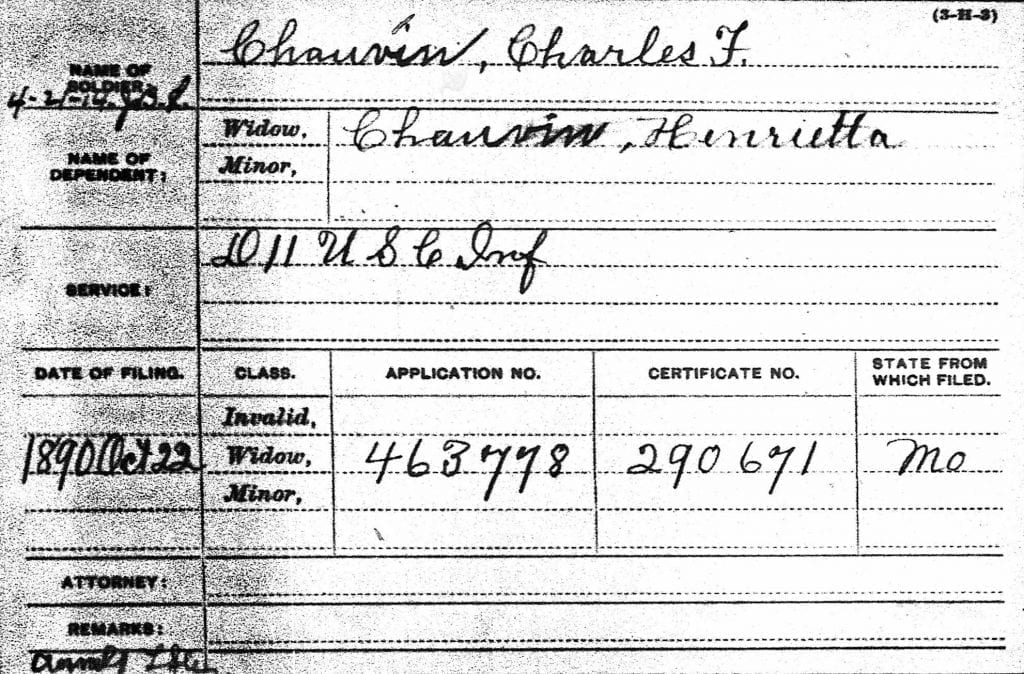 (3-H-3)
NAME OF SOLDIER: Chauvin, Charles F.
4-21-14
NAME OF DEPENDENT:
Widow, Chauvin, Henrietta
Minor,
SERVICE: D 11 U S C Inf
DATE OF FILING. CLASS. APPLICATION NO. CERTIFICATE NO. STATE FROM WHICH FILED.
Invalid,
1890 Oct 22 Widow, 463778 290671 Mo
Minor,
ATTORNEY:
REMARKS: